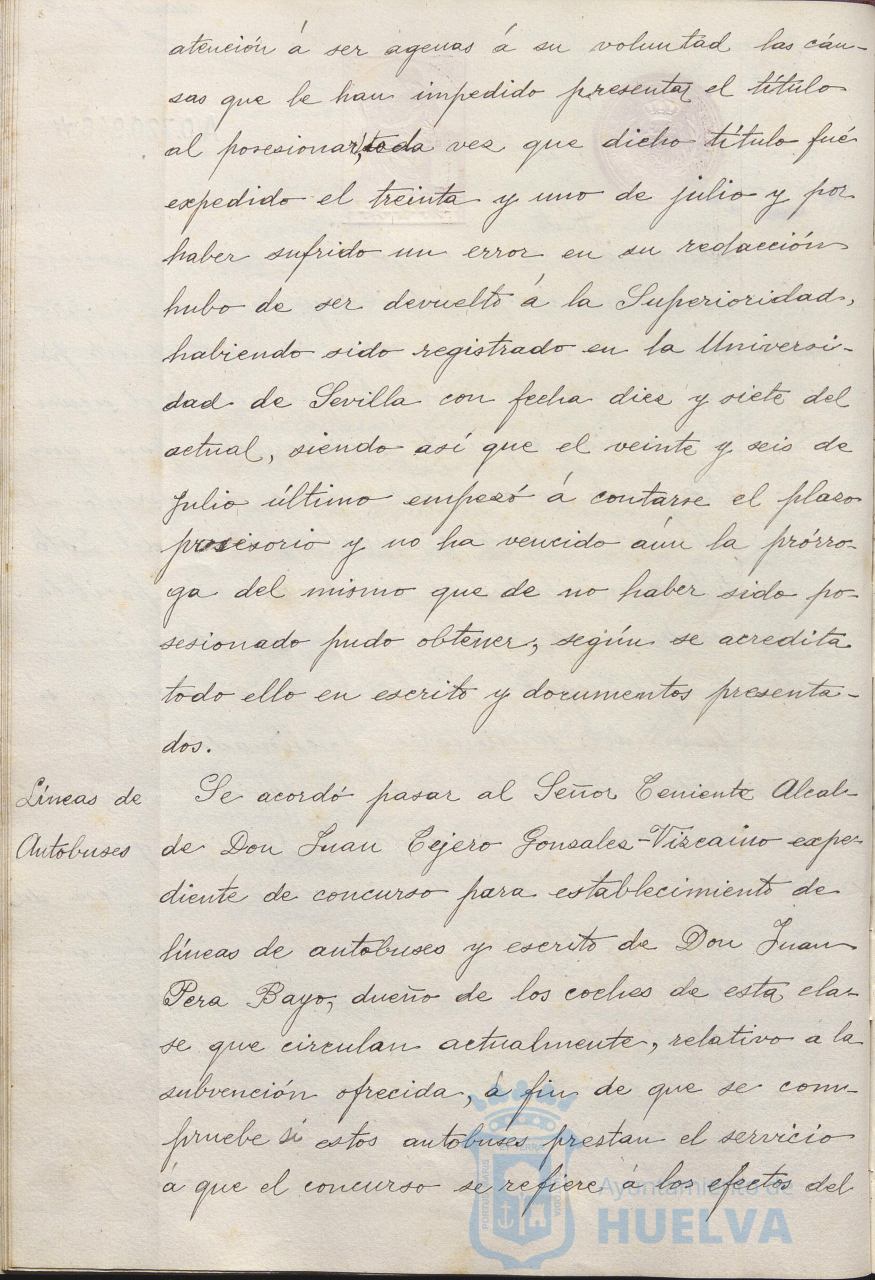 atención á ser agenas á su voluntad las cáu-
sas que le han impedido presentar el título
al posesionar, toda vez que dicho título fué
expedido el treinta y uno de julio y por
haber sufrido un error en su redacción
hubo de ser devuelto á la Superioridad,
habiendo sido registrado en la Universi-
dad de Sevilla con fecha diez y siete del
actual, siendo así que el veinte y seis de
Julio último empezó á contarse el plazo
posesorio y no ha vencido aún la prórro-
ga del mismo que de no haber sido po-
sesionado pudo obtener, según se acredita
todo ello en escrito y documentos presenta-
dos.
Líneas de
Autobuses
Se acordó pasar al Señor Teniente Alcal-
de Don Juan Tejero Gonzalez-Vizcaino expe-
diente de concurso para establecimiento de
líneas de autobuses y escrito de Don Juan
Pera Bayo, dueño de los coches de esta cla-
se que circulan actualmente, relativo a la
subvención ofrecida, a fin de que se com-
pruebe si estos autobuses prestan el servicio
á que el concurso se refiere á los efectos del
Ayuntamiento de
HUELVA